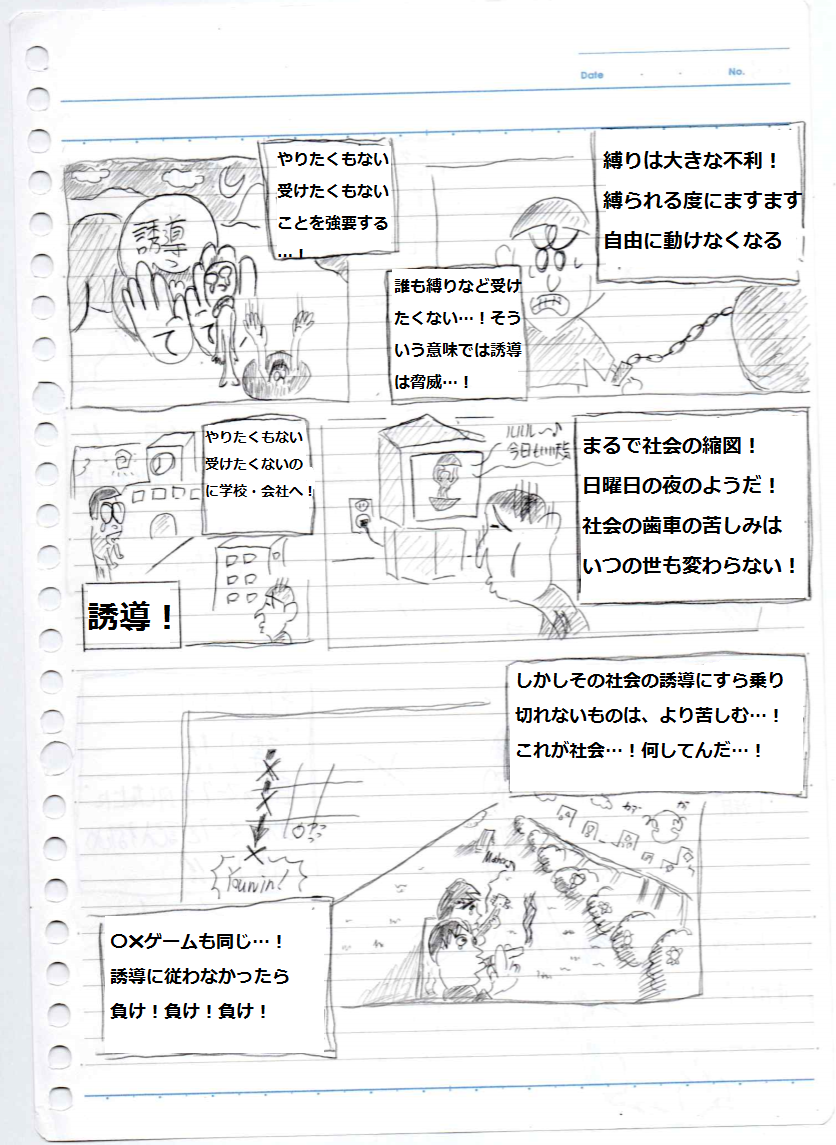 Date
No.
縛りは大きな不利！
縛られる度にますます
自由に動けなくなる
やりたくもない
受けたくもない
ことを強要する
…！
誘導
って
て
誰も縛りなど受け
たくない…！そう
いう意味では誘導
は脅威…！
まるで社会の縮図！
日曜日の夜のようだ！
社会の歯車の苦しみは
いつの世も変わらない！
ルルル～♪
今日もいい天気
やりたくもない
受けたくないの
に学校・会社へ！
誘導！
しかしその社会の誘導にすら乗り
切れないものは、より苦しむ…！
これが社会…！何してんだ…！
You win!
〇×ゲームも同じ…！
誘導に従わなかったら
負け！負け！負け！